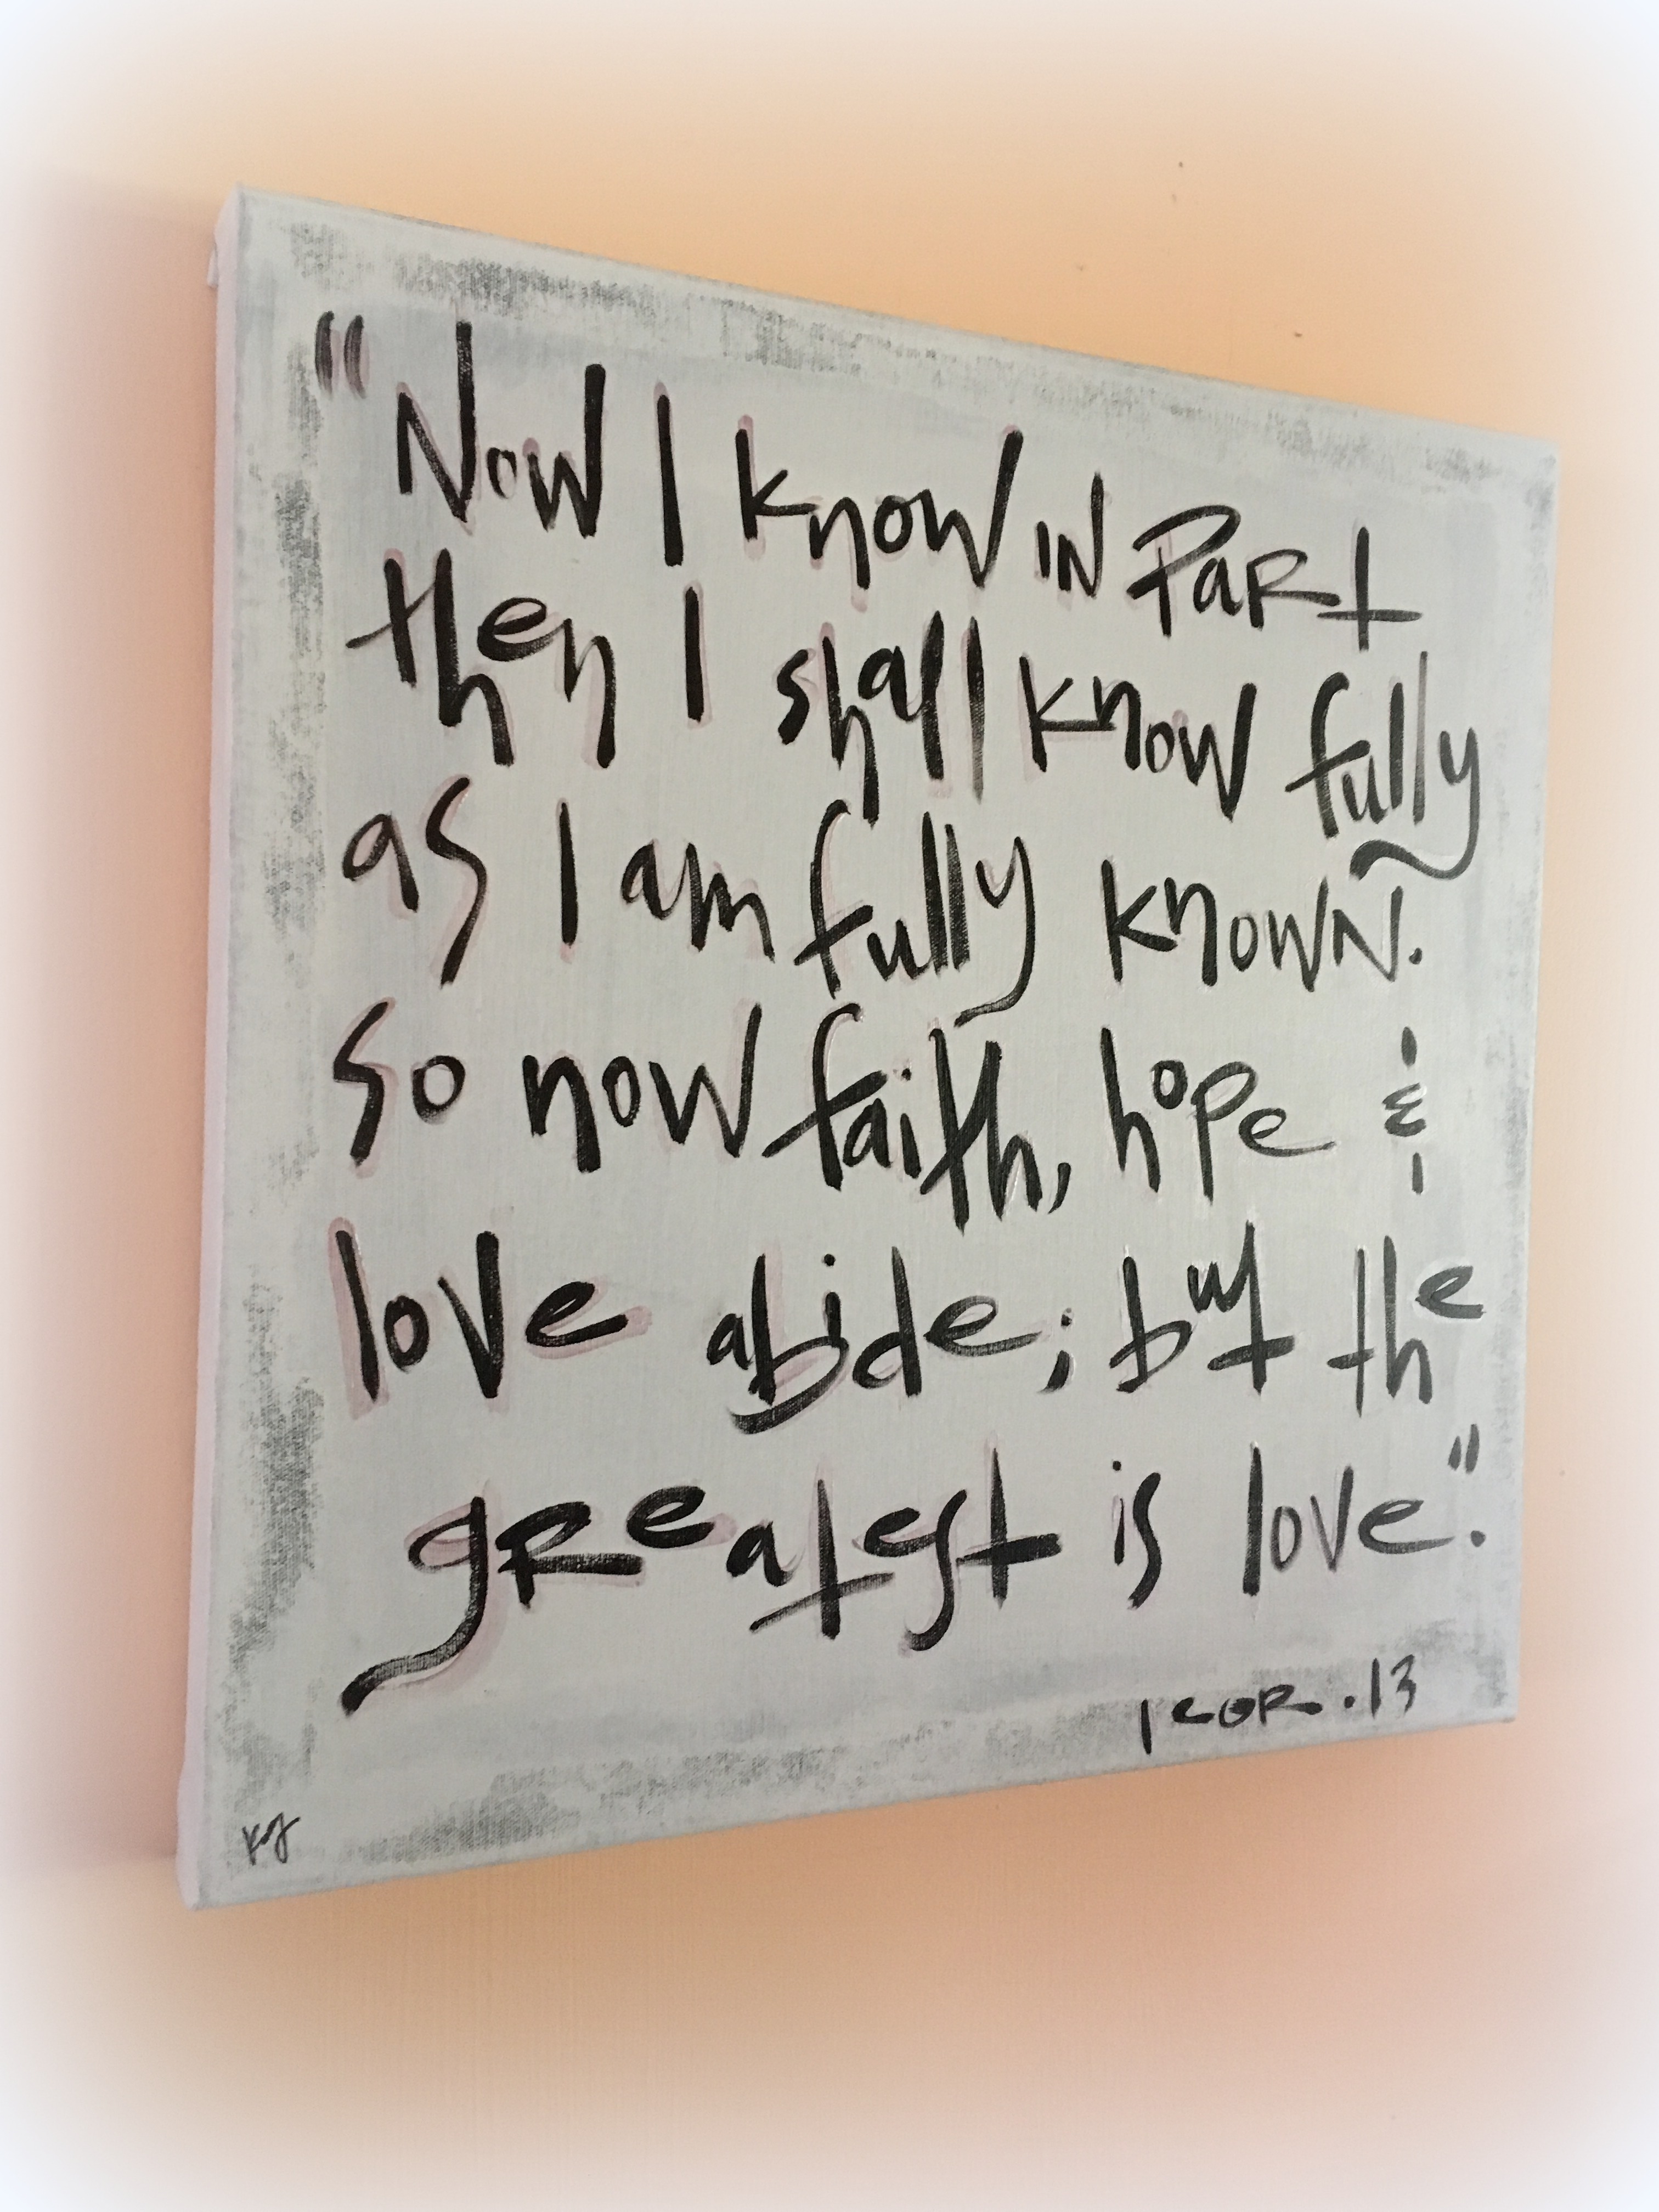 "Now I know in Part
then I shall know fully
as I am fully known.
So now faith, hope &
love abide; but the
greatest is love."
1 COR. 13